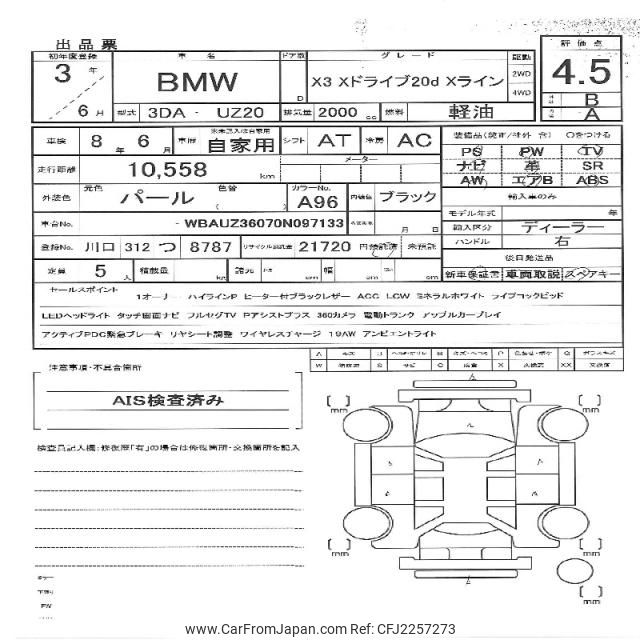 出品票
初年度登録 車名 ドア数 グレード 駆動 評価点
3年 BMW D X3 Xドライブ20d Xライン 2WD 4.5
4WD
6月 型式 3DA- UZ20 排気量 2000 cc 燃料 軽油 B
A
車検 8年 6月 車歴 自家用 シフト AT 冷房 AC 装備品
PS PW TV
走行距離 10,558 km メーター ナビ 革 SR
AW エアB ABS
外装色 元色 パール 色替 ( カラーNo. A96 内装色 ブラック 輸入車のみ
モデル年式 年
車台No. - WBAUZ36070N097133 月 日 輸入区分 ディーラー
登録No. 川口 312 つ 8787 リサイクル預託金 21720 円 預託済 未預託 ハンドル 右
後日発送品
定員 5人 積載量 kg 諸元 長さ cm 幅 cm cm 新車保証書 車両取説 スペアキー
セールスポイント
1オーナー ハイラインP ヒーター付ブラックレザー ACC LCW ミネラルホワイト ライブコックピッド
LEDヘッドライト タッチ画面ナビ フルセグTV Pアシストプラス 360カメラ 電動トランク アップルカープレイ
アクティブPDC緊急ブレーキ リヤシート調整 ワイヤレスチャージ 19AW アンビエントライト
注意事項・不具合箇所
AIS検査済み
検査員記入欄:修復歴「有」の場合は修復箇所・交換箇所を記入
[ ] mm [ ] mm
A
A A
A A
[ ] mm [ ] mm
A
[ ] mm
PW
www.CarFromJapan.com Ref: CFJ2257273